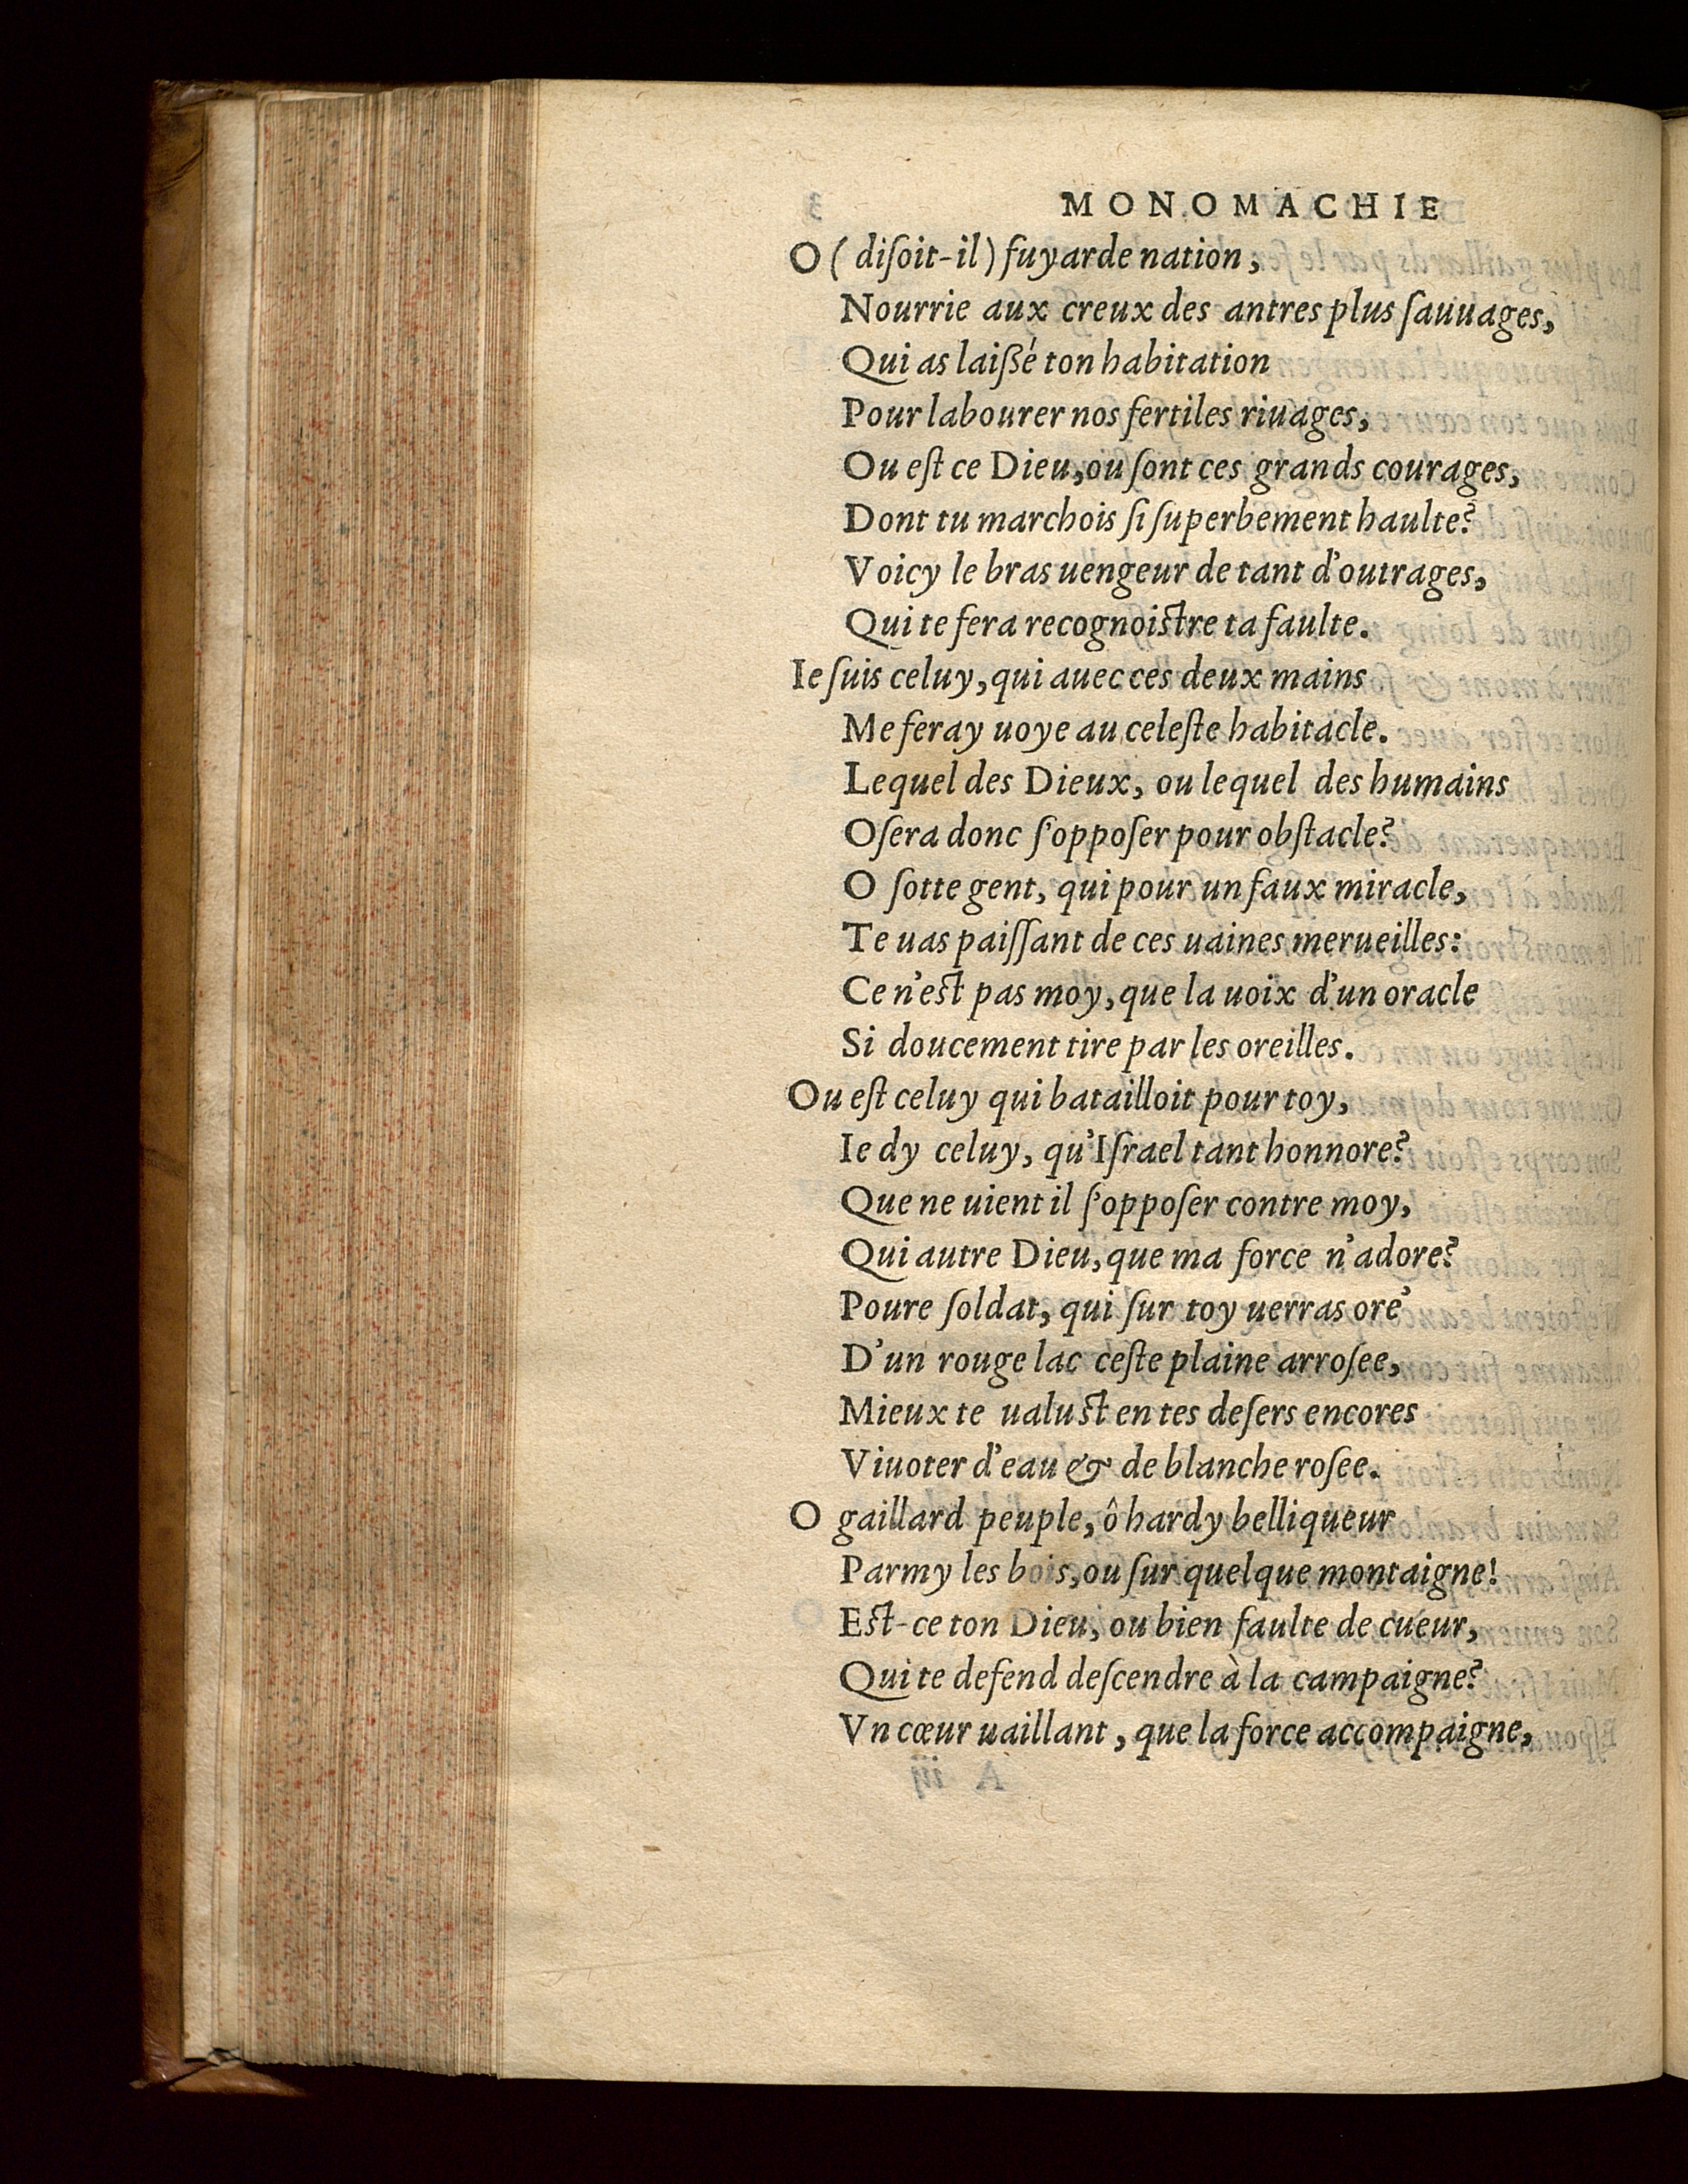 MONOMACHIE
O (diſoit-il) fuyarde nation,
Nourrie aux creux des antres plus ſauuages,
Qui as laißé ton habitation
Pour labourer nos fertiles riuages,
Ou eſt ce Dieu, ou ſont ces grands courages,
Dont tu marchois ſi ſuperbement haulte?
Voicy le bras uengeur de tant d'outrages,
Qui te fera recognoiſtre ta faulte.
Ie ſuis celuy, qui auec ces deux mains
Me feray uoye au celeſte habitacle.
Lequel des Dieux, ou lequel des humains
Oſera donc ſ'oppoſer pour obſtacle?
O ſotte gent, qui pour un faux miracle,
Te uas paiſſant de ces uaines merueilles:
Ce n'eſt pas moy, que la uoix d'un oracle
Si doucement tire par les oreilles.
Ou eſt celuy qui batailloit pour toy,
Ie dy celuy, qu'Iſrael tant honnore?
Que ne uient il ſ'oppoſer contre moy,
Qui autre Dieu, que ma force n'adore?
Poure ſoldat, qui ſur toy uerras ore'
D'un rouge lac ceſte plaine arroſee,
Mieux te ualuſt en tes deſers encores
Viuoter d'eau & de blanche roſee.
O gaillard peuple, ô hardy belliqueur
Parmy les bois, ou ſur quelque montaigne!
Eſt-ce ton Dieu, ou bien faulte de cueur,
Qui te defend deſcendre à la campaigne?
Vn cœur uaillant, que la force accompaigne,